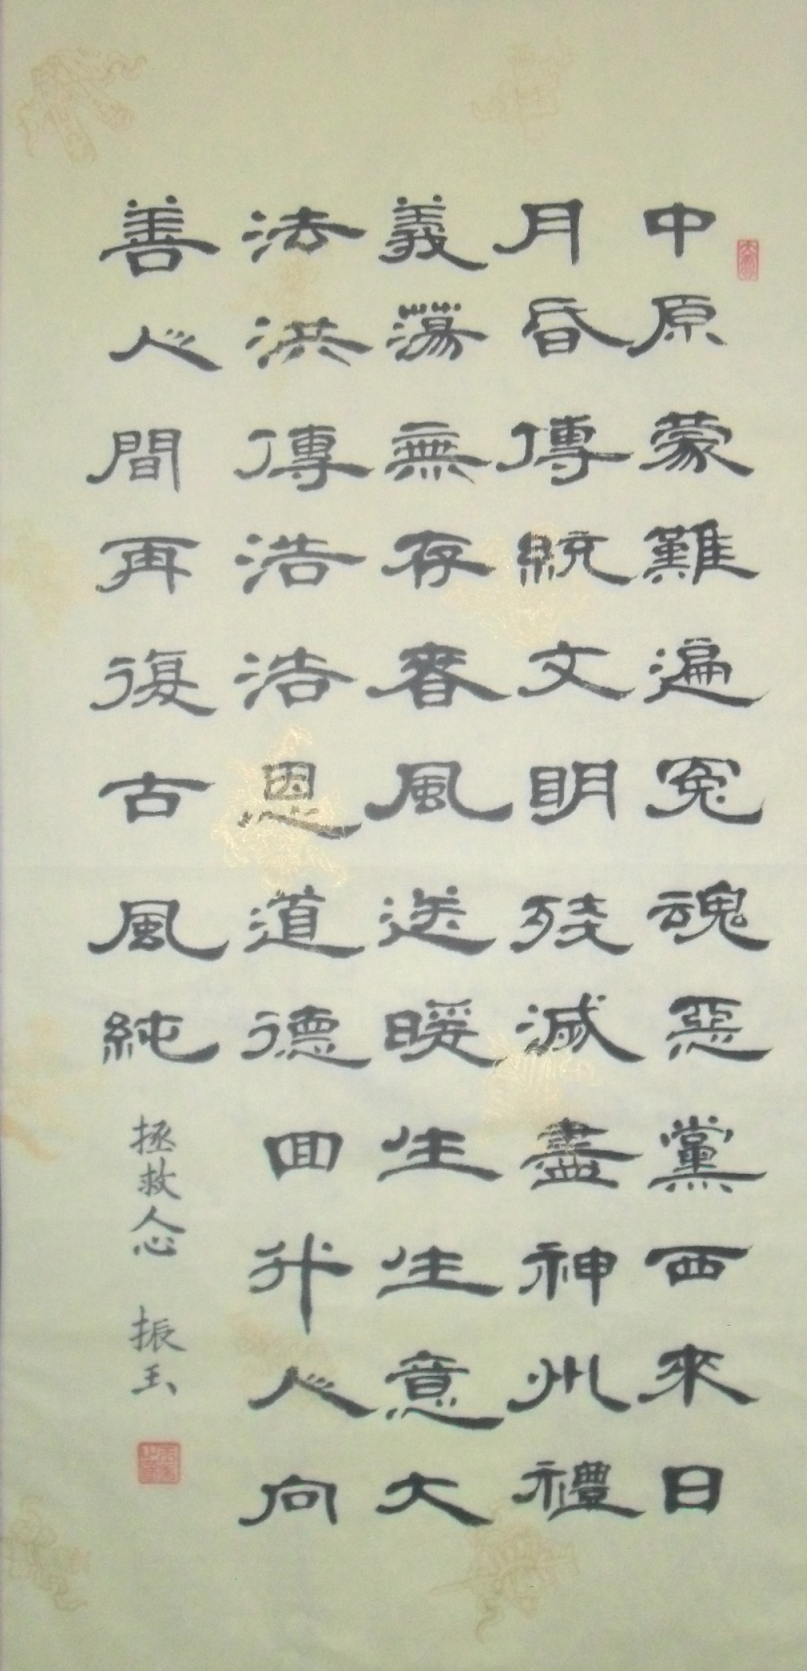 中原蒙難遍冤魂惡黨西來日
月昏傳統文明殘滅盡神州禮
義蕩無存春風送暖生生意大
法洪傳浩浩恩道德回升人向
善人間再復古風純
拯救人心 振玉